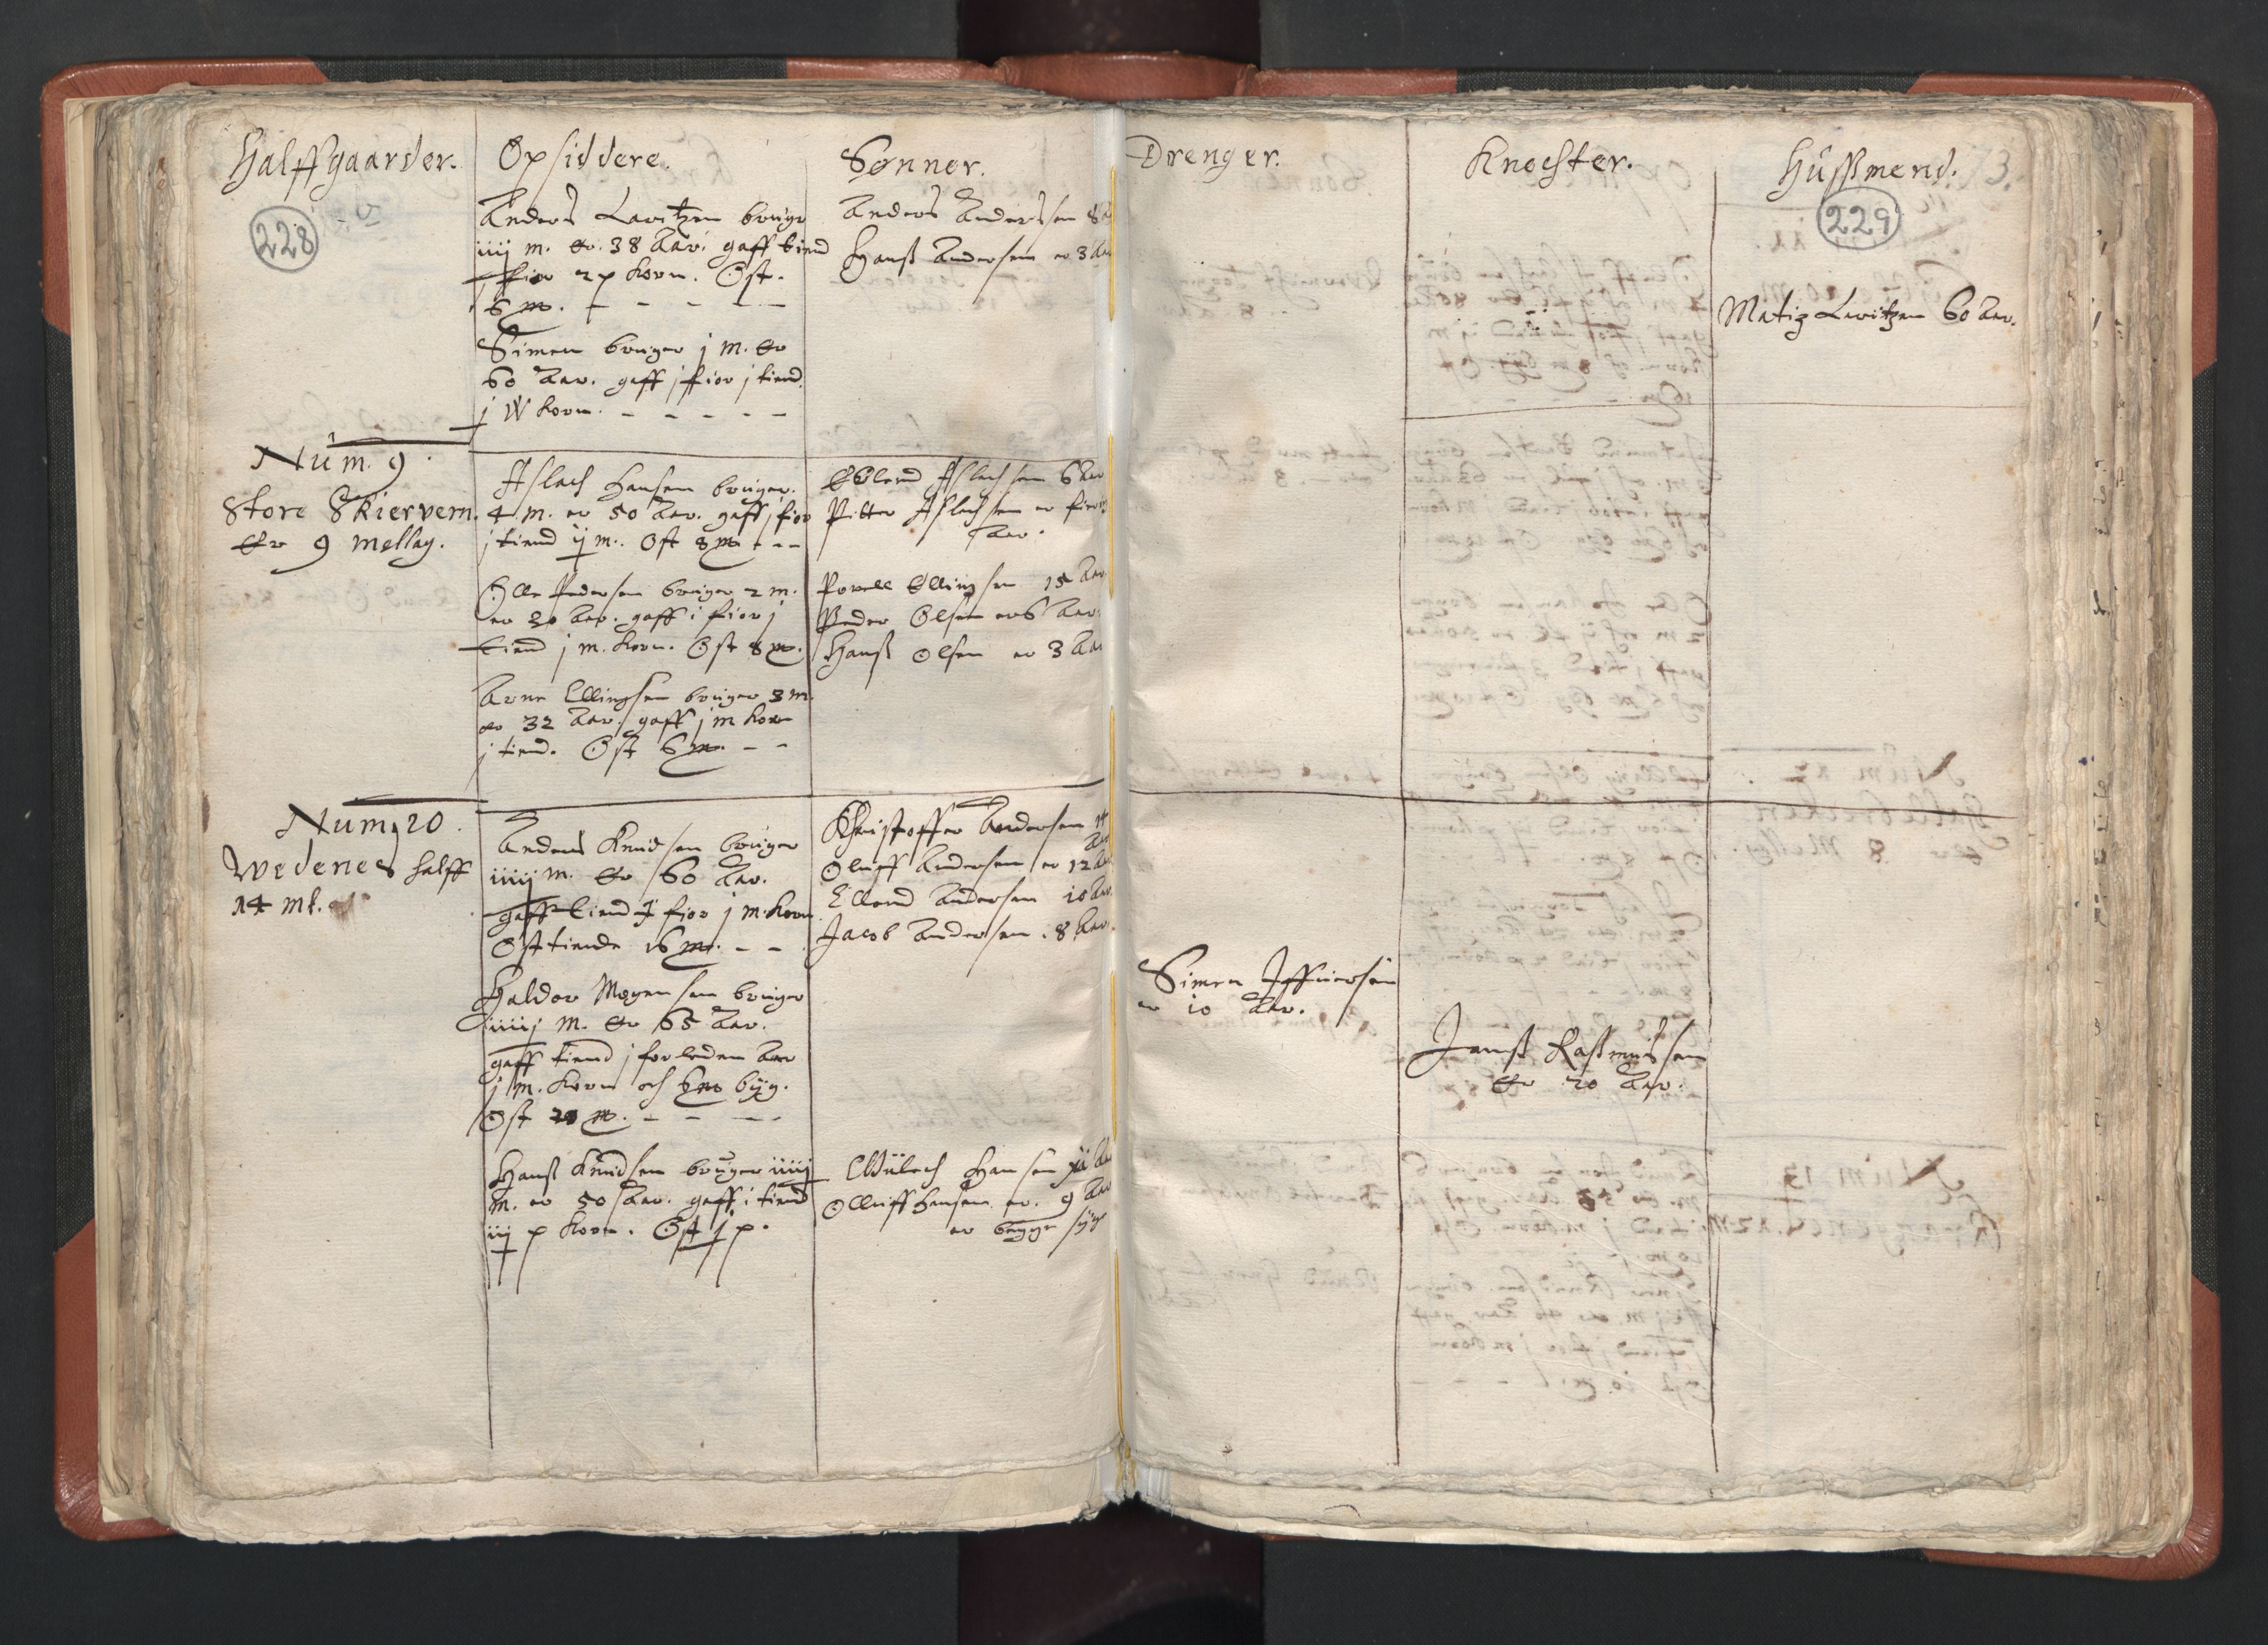 Halffgaarder. Opsiddere. Sønner. Drenger. Knechter. Hussmend.
228
229
Anders Lavritzen bruger
iiij m. er 38 Aar. gaff tiend
j fior 2 p korn. Ost.
6 m.
Simen bruger j m. er
60 Aar. gaff j fior j tiend
j W korn.
Anders Anderssen 8
Hanss Andersen er 3 Aar
Matiz Lavritzen 60 Aar.
Num. 9.
Store Skiervem.
er 9 mellag.
Aslach Hansen bruger.
4 m. er 50 Aar. gaff j fior
j tiend ij m. Ost 8 m
Olle Pedersen bruger 2 m.
er 30 Aar. gaff i fior j
tiend j m. korn. Ost 8 m.
Arne Ellingsen bruger 3 m.
er 32 Aar. gaff j m korn
j tiend. Ost 6 m.
Aslachsen 6 Aar
Pitter Aslachsen er fire
Aar.
Povell Ellingsen 15 Aar
Peder Olsen er 6 Aar.
Hanss Olsen er 3 Aar
Num. 20.
Wedenes halff
14 ml.
Anders Knudsen bruger
iiiij m. er 60 Aar.
gaff tiend J fior j m. korn
Ost tiende 16 m.
Haldor Mogensen bruger
iiiij m. er 65 Aar.
gaff tiend j forleden Aar
j m. korn och 6 m byg.
Ost 20 m.
Hanss Knudsen bruger iiiij
m. er 50 Aar. gaff i tiend
iij p korn. Ost j p.
Christoffer Andersen 14
Aar
Oluff Andersen er 12 Aar
Ellend Andersen 10 Aar.
Jacob Andersen. 8 Aar.
Hansen
Olluff Hansen er. 9 Aar
er begge
Simen
er 10 Aar.
Janss Rassmussen
er 20 Aar.